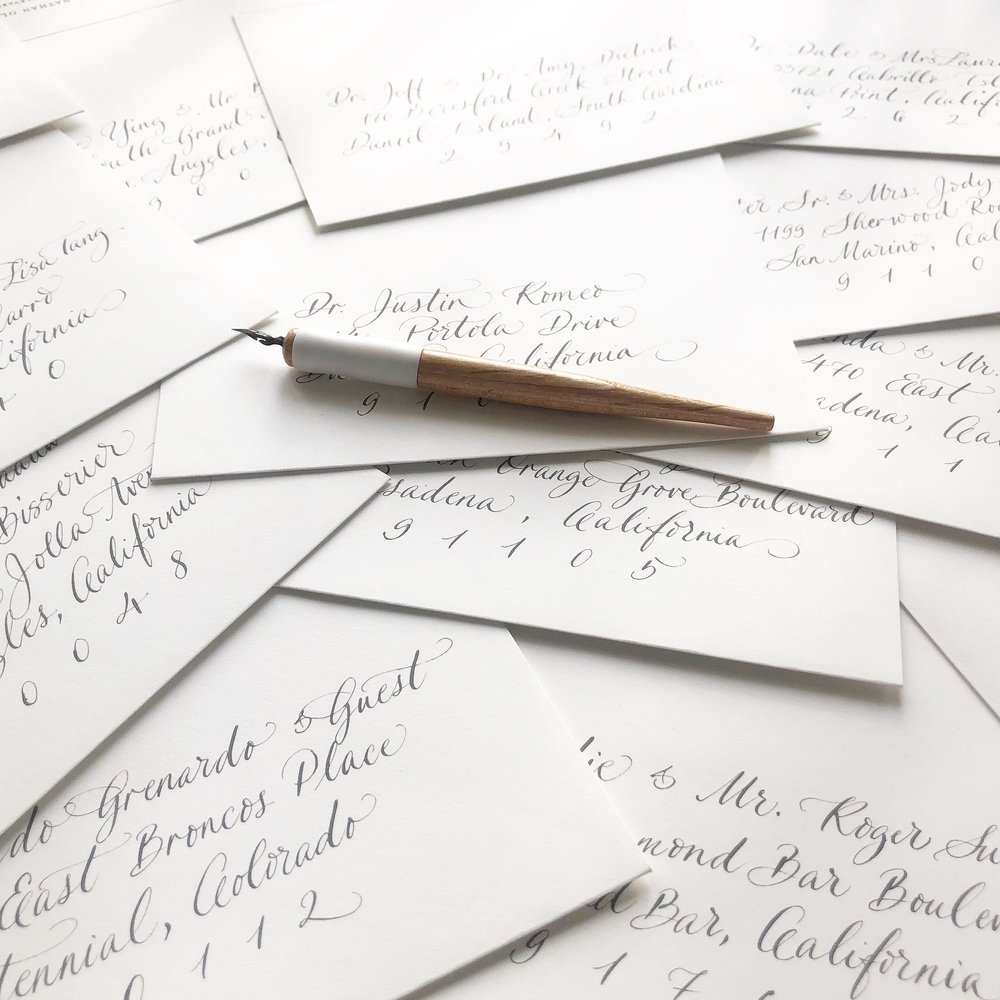 Ying & Mr.
South Grand
Angeles,
9 0 0
Dr. Jeff & Dr. Amy Dietrich
110 Beresford Creek Street
Daniel Island, South Carolina
2 9 4 9 2
Dr. Dale & Mrs. Laura
33121 Cabrillo Isl
na Point, Califo
2 6 2
er Sr. & Mrs. Jody
1199 Sherwood Roa
San Marino, Cal
9 1 1 0
Lisa Tang
arro
lifornia
0
Dr. Justin Romeo
Portola Drive
California
9 1 0
nda & Mr.
470 East
adena, Ca
9 1 1
Bisserier
Jolla Ave
les, California
0 0 4 8
Orange Grove Boulevard
sadena, California
9 1 1 0 5
do Grenardo & Guest
East Broncos Place
tennial, Colorado
0 1 1 2
ie & Mr. Roger Su
mond Bar Boulev
d Bar, California
9 1 7